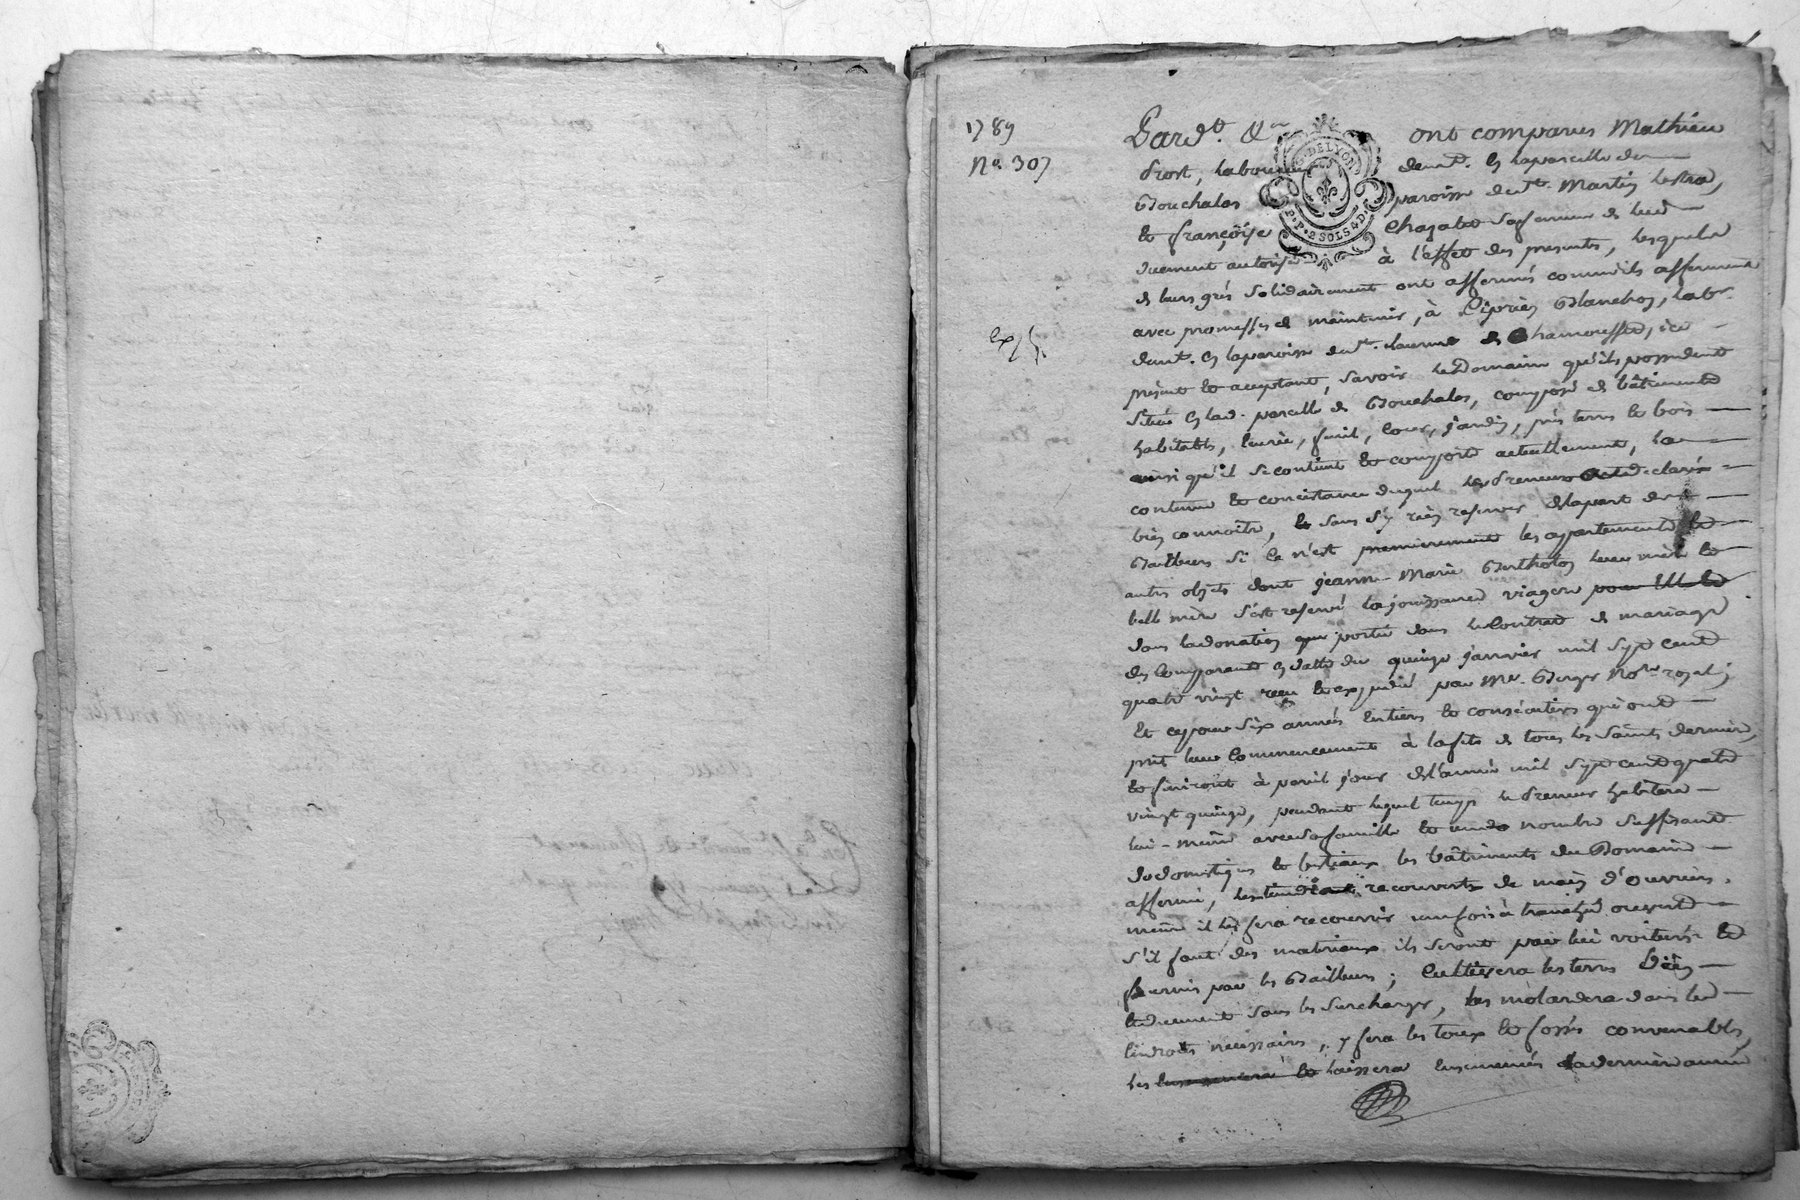 1789
No. 307
exp.
G. DE LYON
P. P. 2 SOLS 4 D.
Pard.t &a ont comparus Mathieu
Prost, laboureur demt. en la parcelle de
Bouchalas paroisse de St. Martin Lestra,
et françoise Chazalet sa femme de lui
duement autorisée à l'effet des presents, lesquels
de leurs grés solidairement ont affermés comme ils afferment
avec promesse de maintenir, à Ciprien Blanchon, labr.
demt. en la paroisse de St. Laurent de Chamousset, ici
present et acceptant, savoir le Domaine qu'ils possedent
situé en lad. parcelle de Bouchalas, composé de bâtiments
habitables, écurie, fenil, cour, jardin, prés terres et bois
ainsi qu'il se contient et comporte actuellement, la
contenue et concistance duquel le preneur a declaré
bien connoitre, et sans s'y rien reserver de la part des
Bailleurs si ce n'est premierement les appartements et
autres objets dont jeanne Marie Bertholon leur mère et
belle mère s'est reservé la jouissance viagere pour elle et
dans la donation que portée dans le Contrat de mariage
des Comparants en datte du quinze janvier mil sept cent
quatre vingt reçu et expedié par Me. Berger Nore. royal;
et ce pour six années entieres et consécutives qui ont
prit leur commencement à la fête de tous les Saints derniere,
et finiront à pareil jour de l'année mil sept cent quatre
vingt quinze, pendant lequel temps le Preneur habitera
lui-même avec sa famille et nombre suffisant
de domestiques et bestiaux les bâtiments du Domaine
affermé, les recouverts de main d'ouvriers,
même il les fera recouvrir une fois à tranche ouverte
s'il faut des materiaux ils seront voiturés et
fournis par les Bailleurs; cultivera les terres bien
duement sans les surcharger, les dans les
endroits necessaires, y fera les tours et fossés convenables,
les ensemencera et laissera ensemencés la derniere année